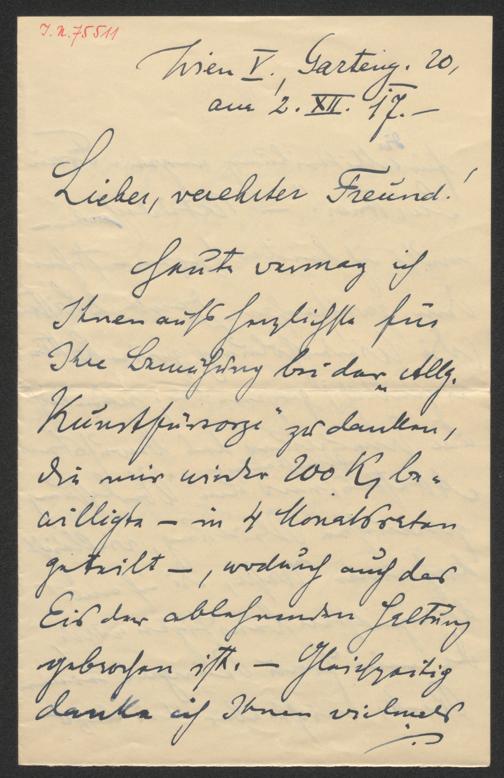 J.N. 75511
Wien V., Garteng. 20,
am 2. XII. 17. –
Lieber, verehrter Freund!
Heute vermag ich
Ihnen aufs herzlichste für
Ihre Bemühung bei der „Allg.
Kunstfürsorge“ zu danken,
die mir wieder 200 K, be-
willigte – in 4 Monatsraten
geteilt –, wodurch auch das
Eis der ablehnenden Haltung
gebrochen ist. – Gleichzeitig
danke ich Ihnen vielmals